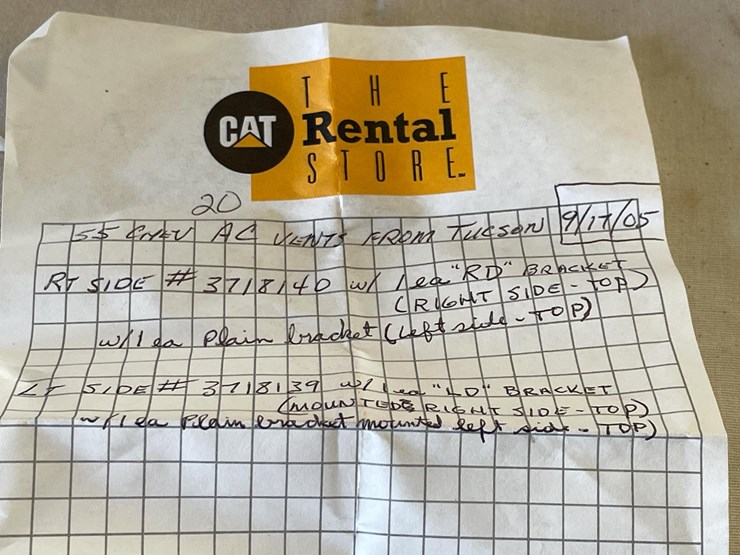 THE
CAT Rental
STORE
20
55 CHEV AC VENTS FROM TUCSON 9/17/05
RT SIDE # 3718140 w/ 1 ea "RD" BRACKET
(RIGHT SIDE - TOP)
w/1 ea Plain bracket (left side - TOP)
LT SIDE # 3718139 w/ 1 ea "LD" BRACKET
(MOUNTED RIGHT SIDE - TOP)
w/1 ea Plain bracket mounted left side - TOP)